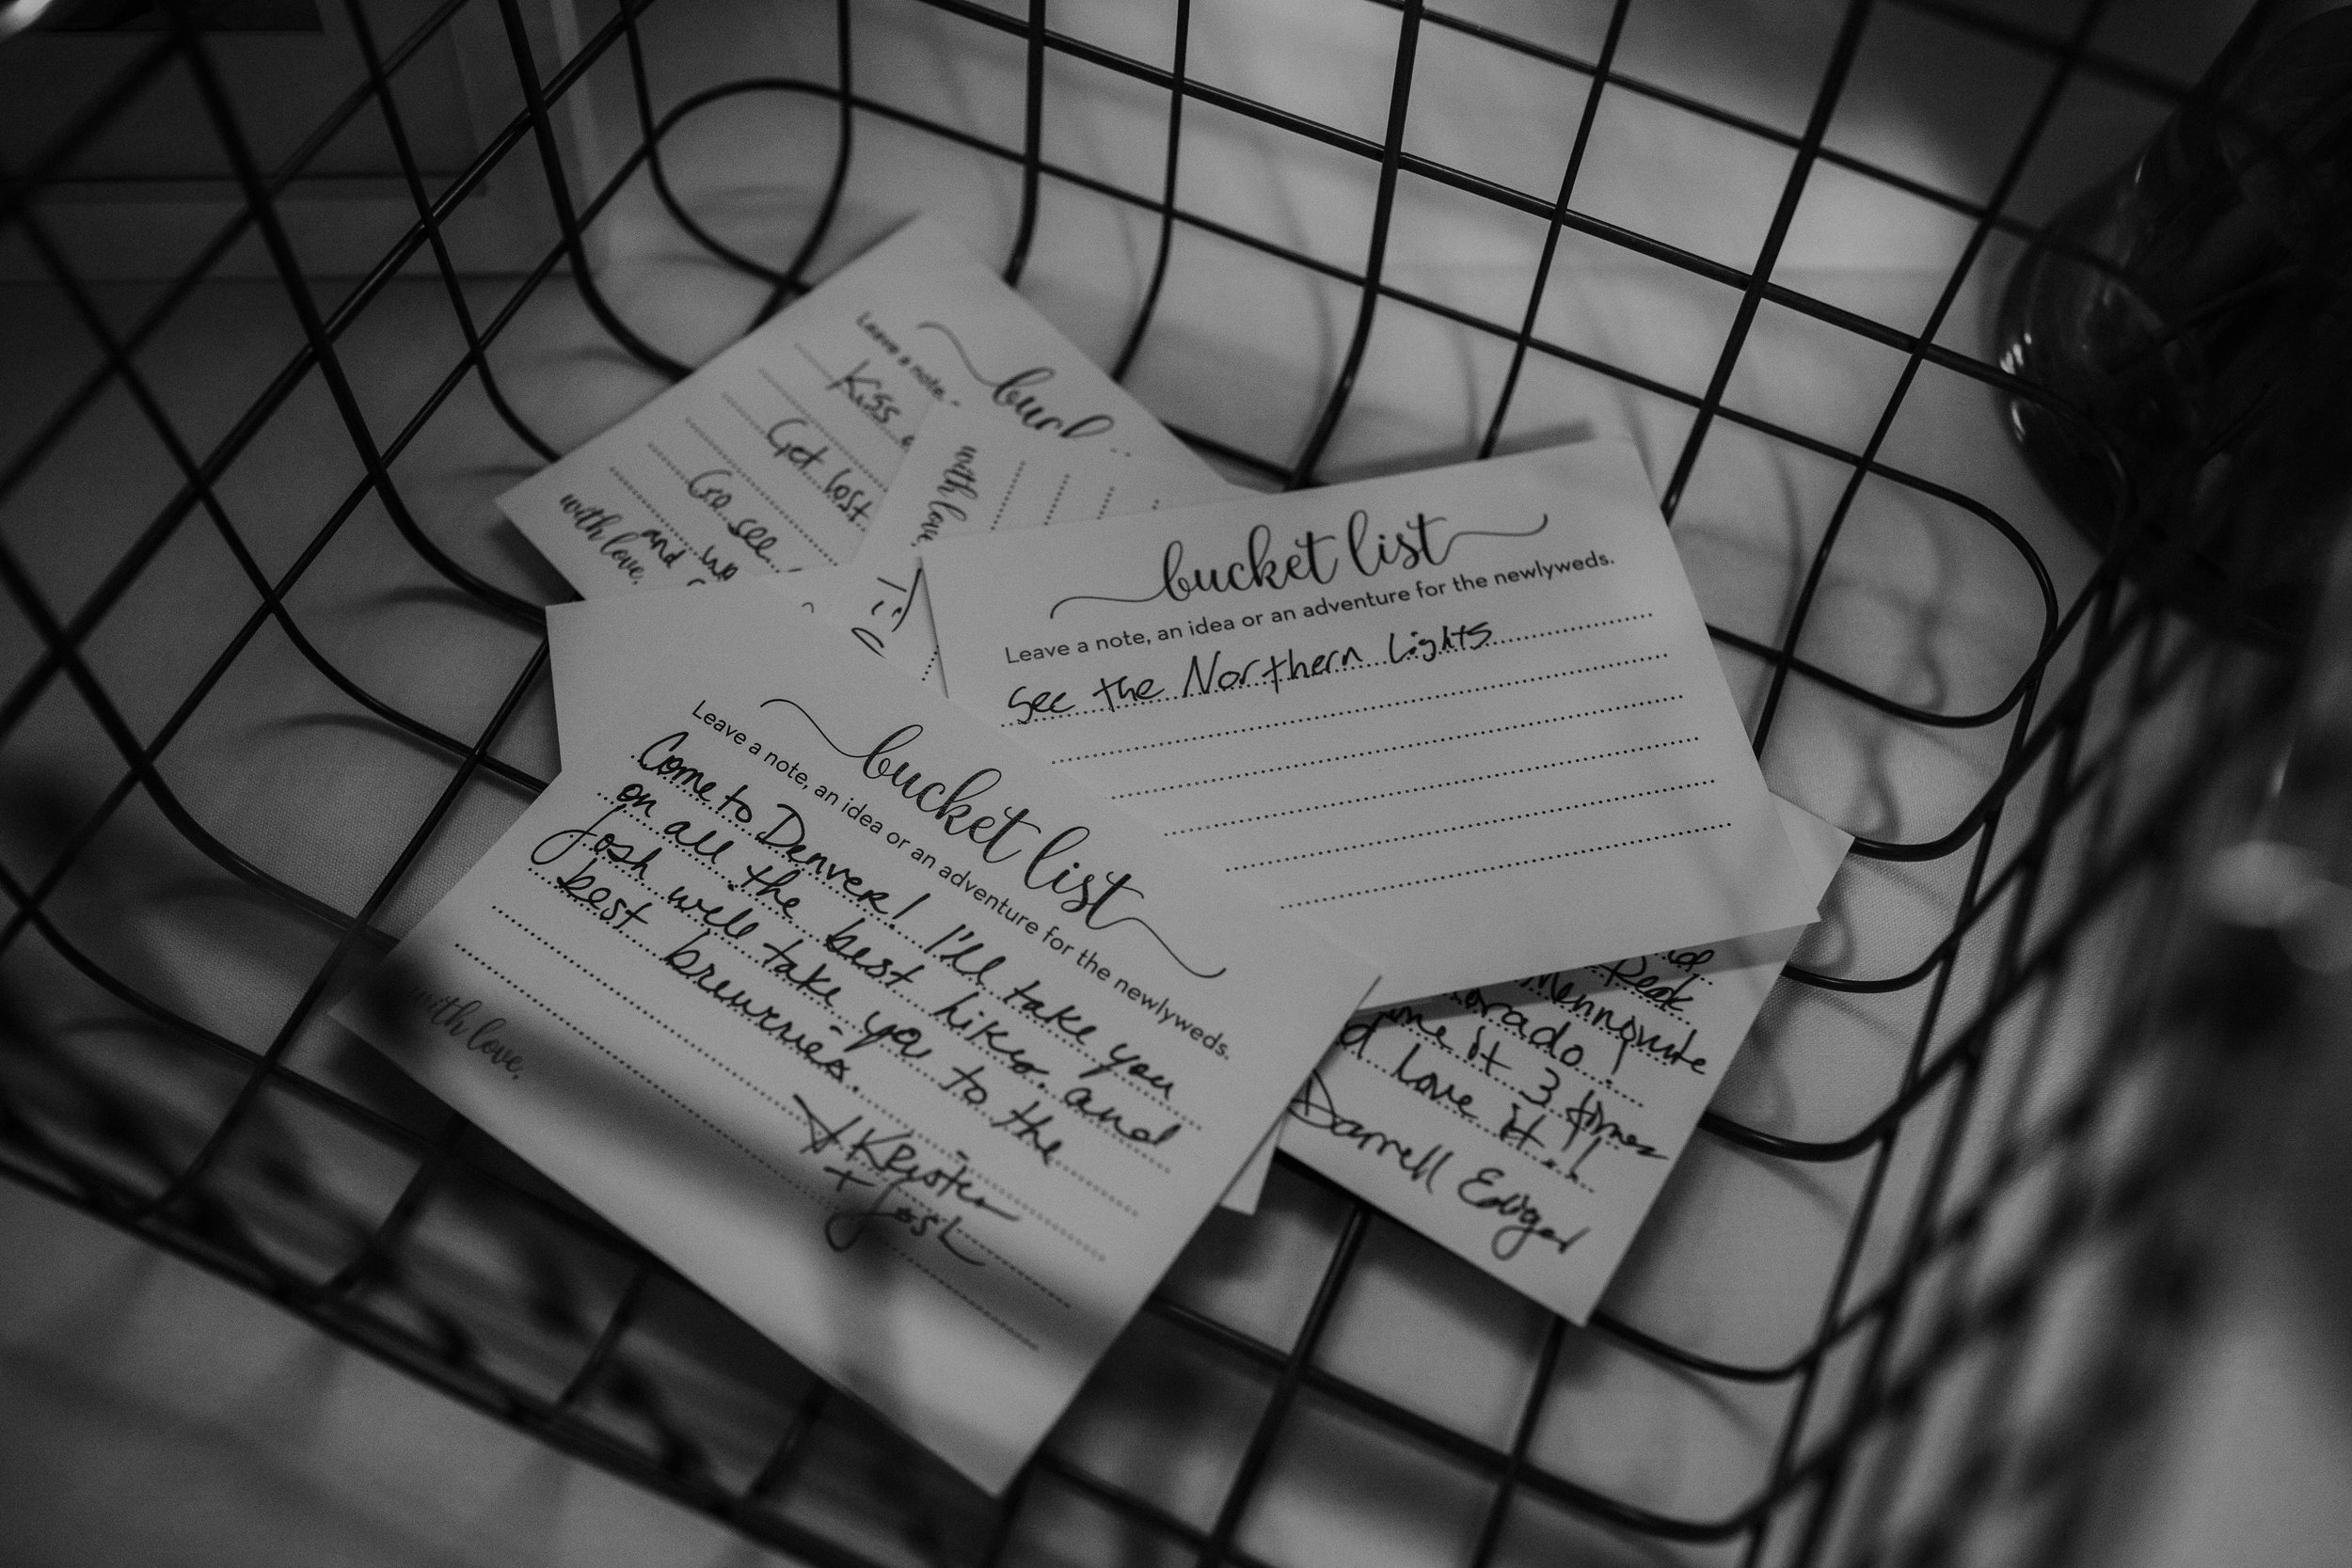 Leave a note,
Kiss
Get lost
Go see
and
with love,
with love,
bucket list
Leave a note, an idea or an adventure for the newlyweds.
See the Northern Lights
bucket list
Leave a note, an idea or an adventure for the newlyweds.
Come to Denver! I'll take you
on all the best hikes and
Josh will take you to the
best breweries.
Krysten
+ Josh
with love,
Peak
Mennonite
it 3 times
love it!!
Darrell Ediger